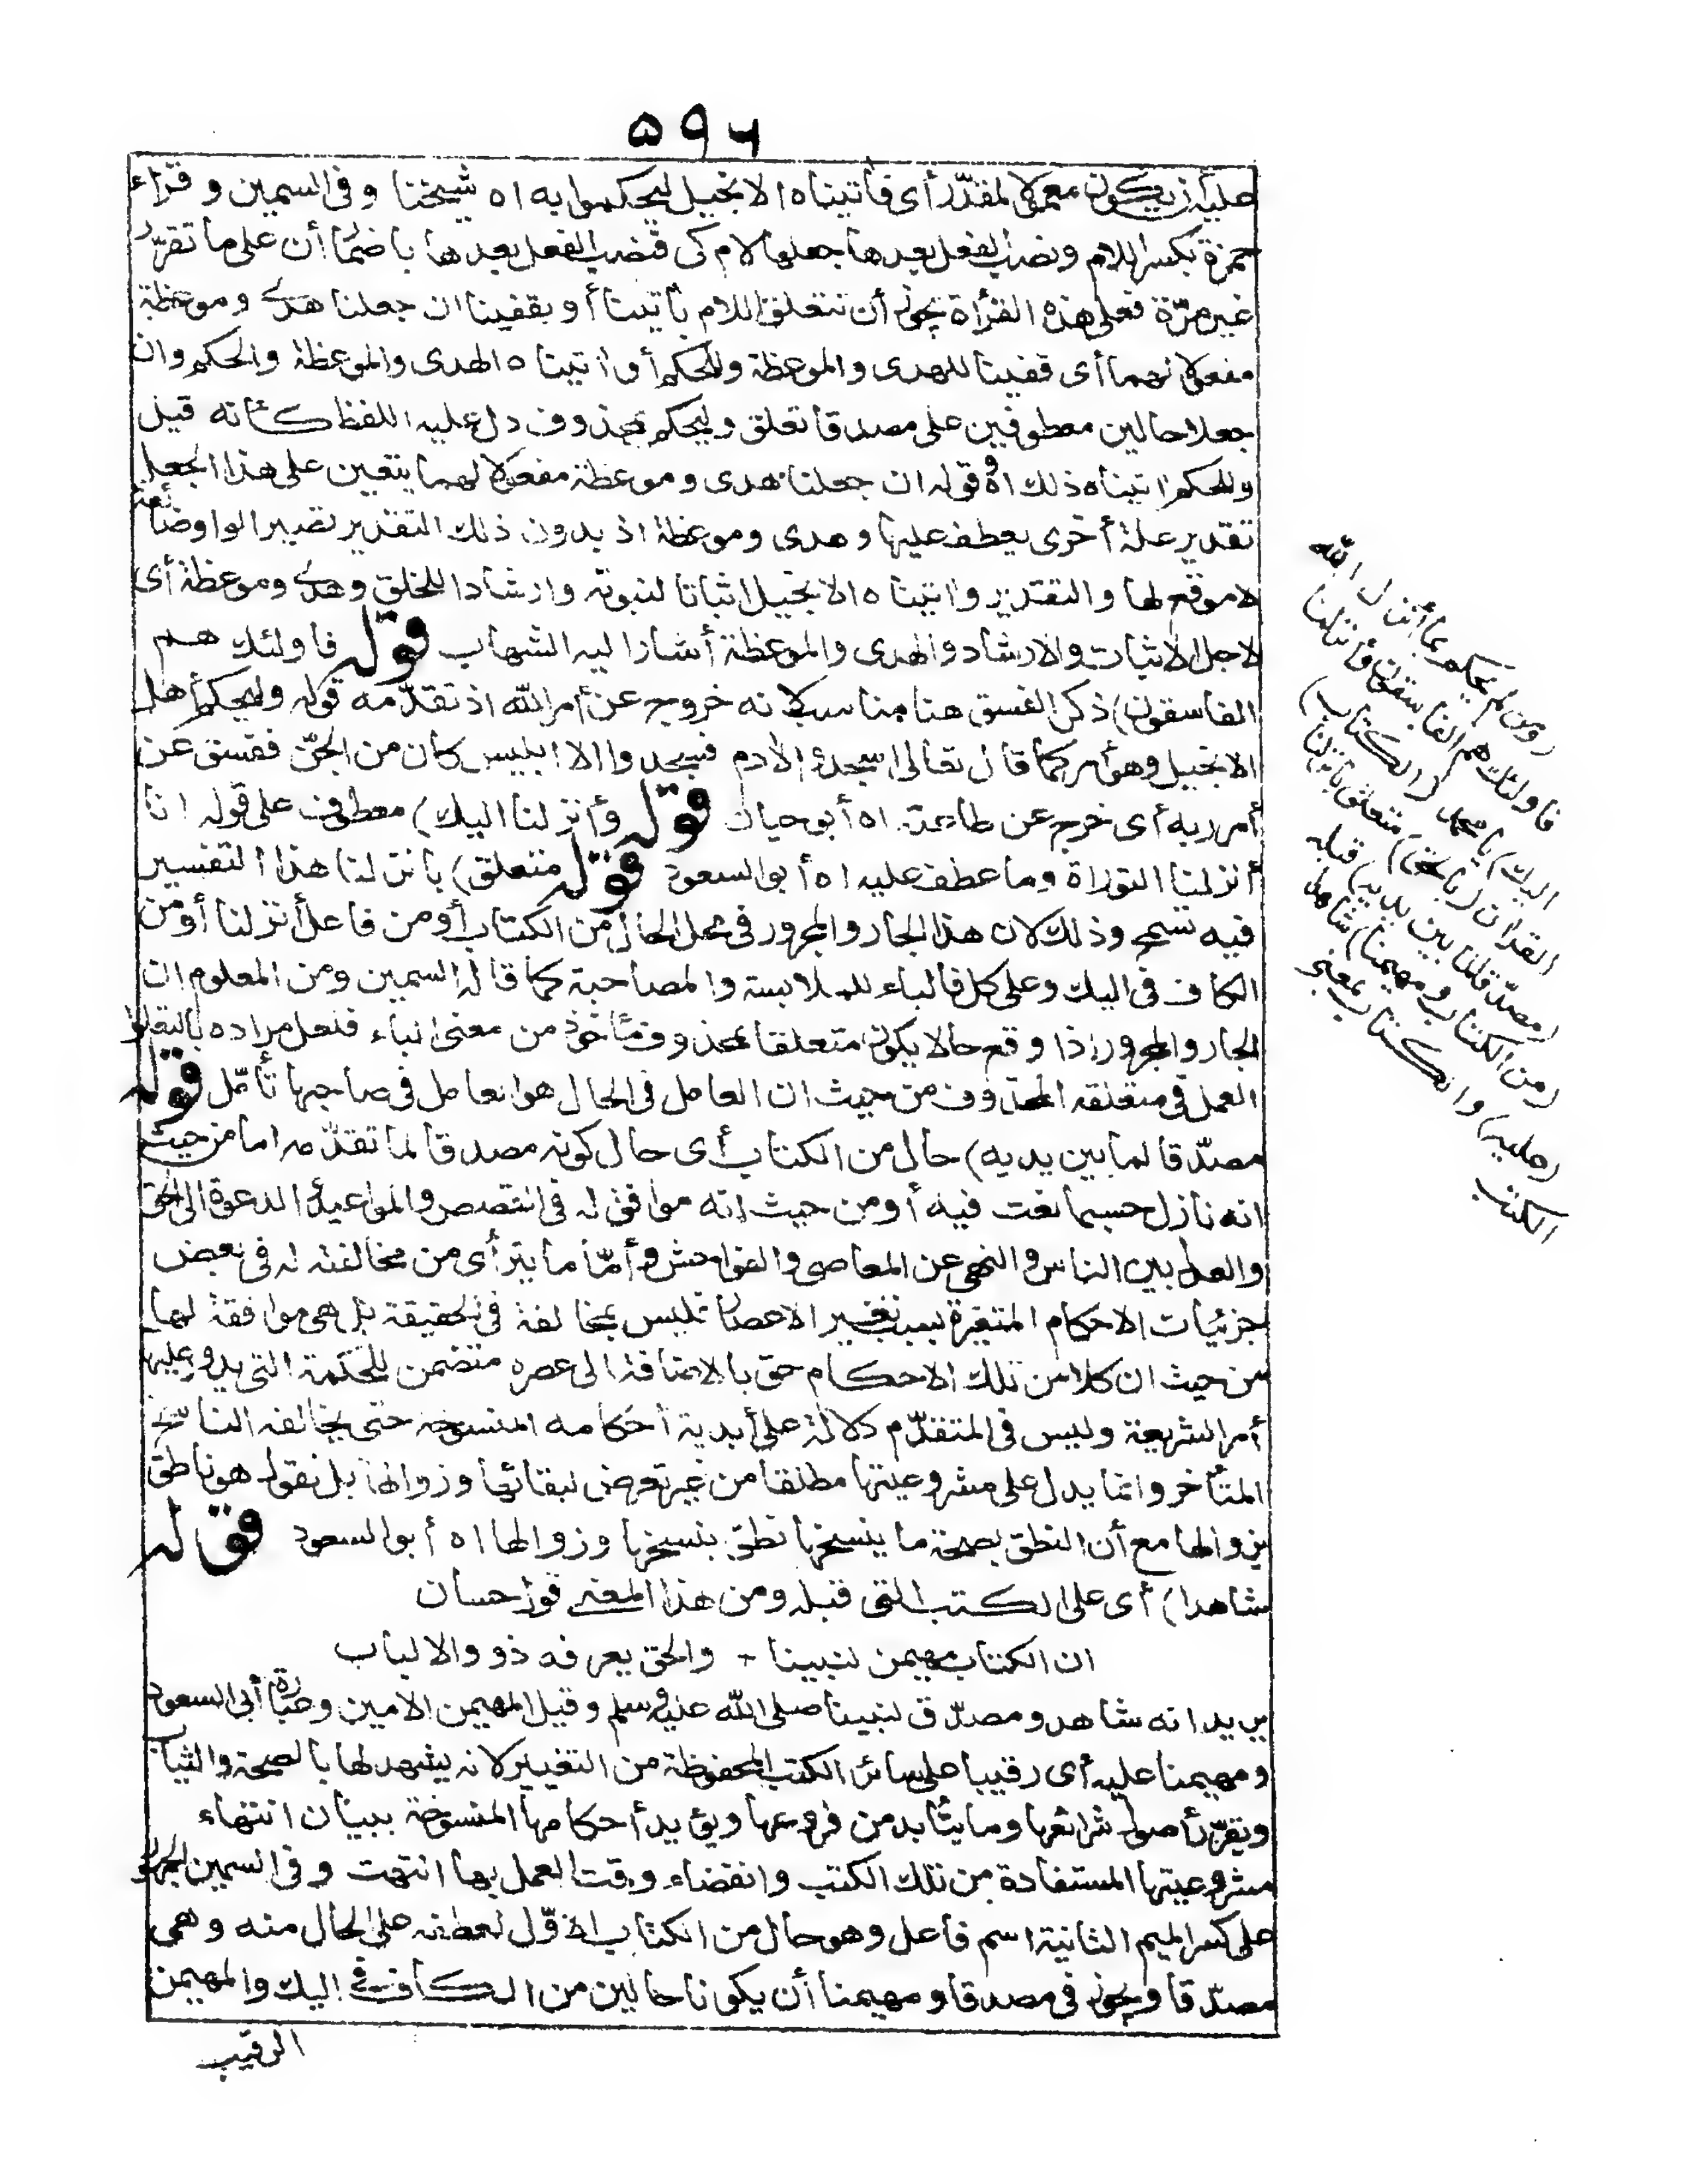 ۵۹۶
عليه أن يكون معمولا لمقدّر أى فآتيناه الانجيل ليحكموا به اه شيخنا وفى السمين وقراء
حمزة بكسر اللام ونصب الفعل بعدها جعلها لام كى فنصب الفعل بعدها باضمار أن على ما تقرّر
غير مرّة فعلى هذه القراءة يجوز أن تتعلق اللام بآتينا أو بقفينا ان جعلنا هدى وموعظة
مفعولا لهما أى قفينا للهدى والموعظة وللحكم أو آتيناه الهدى والموعظة والحكم وان
جعلا حالين معطوفين على مصدقا تعلق وليحكم بمحذوف دل عليه اللفظ كأنه قيل
وللحكم آتيناه ذلك اه وقوله ان جعلنا هدى وموعظة مفعولا لهما يتعين على هذا الجعل
تقدير علة أخرى يعطف عليها وهدى وموعظة اذ بدون ذلك التقدير تصير الواو ضائعة
لا موقع لها والتقدير وآتيناه الانجيل اثباتا لنبوته وارشادا للخلق وهدى وموعظة أى
لاجل الاثبات والارشاد والهدى والموعظة أشار اليه الشهاب قوله فاولئك هم
الفاسقون) ذكر الفسق هنا مناسب لانه خروج عن أمر الله اذ تقدّمه قوله وليحكم أهل
الانجيل وهو أمر كما قال تعالى اسجدوا لادم فسجدوا الا ابليس كان من الجنّ ففسق عن
أمر ربه أى خرج عن طاعته اه أبو حيان قوله وأنزلنا اليك) معطوف على قوله انا
أنزلنا التوراة وما عطف عليه اه أبو السعود قوله متعلق) بانزلنا هذا التفسير
فيه تسمح وذلك لان هذا الجار والمجرور فى محل الحال من الكتاب أو من فاعل أنزلنا أو من
الكاف فى اليك وعلى كل فالباء للملابسة والمصاحبة كما قاله السمين ومن المعلوم ان
الجار والمجرور اذا وقع حالا يكون متعلقا بمحذوف مأخوذ من معنى الباء فلعل مراده بالتعلق
العمل فى متعلقه المحذوف من حيث ان العامل فى الحال هو العامل فى صاحبها تأمّل قوله
مصدّقا لما بين يديه) حال من الكتاب أى حال كونه مصدقا لما تقدّمه اما من حيث
انه نازل حسبما نعت فيه أو من حيث انه موافق له فى القصص والمواعيد والدعوة الى الحق
والعدل بين الناس والنهى عن المعاصى والفواحش وأمّا ما يترأى من مخالفته له فى بعض
جزئيات الاحكام المتغيرة بسبب تغير الاعصار فليس بمخالفة فى الحقيقة بل هى موافقة لها
من حيث ان كلا من تلك الاحكام حق بالاضافة الى عصره متضمن للحكمة التى يدور عليها
أمر الشريعة وليس فى المتقدّم دلالة على أبدية أحكامه المنسوخة حتى يخالفه الناسخ
المتأخر وانما يدل على مشروعيتها مطلقا من غير تعرض لبقائها وزوالها بل نقول هو ناطق
بزوالها مع أن النطق بصحة ما ينسخها نطق بنسخها وزوالها اه أبو السعود قوله
شاهدا) أى على الكتب التى قبله ومن هذا المعنى قول حسان
ان الكتاب مهيمن لنبينا - والحق يعرفه ذوو الالباب
يريد انه شاهد ومصدّق لنبينا صلى الله عليه وسلم وقيل المهيمن الامين وعبارة أبى السعود
ومهيمنا عليه أى رقيبا على سائر الكتب المحفوظة من التغيير لانه يشهد لها بالصحة والثبات
ويقرّر أصول شرائعها وما يتأبد من فروعها ويؤيد أحكامها المنسوخة ببيان انتهاء
مشروعيتها المستفادة من تلك الكتب وانقضاء وقت العمل بها انتهت وفى السمين الجمهور
على كسر الميم الثانية اسم فاعل وهو حال من الكتاب الاوّل لعطفه على الحال منه وهى
مصدّقا ويجوز فى مصدقا ومهيمنا أن يكونا حالين من الكاف فى اليك والمهيمن
الرقيب
(ومن لم يحكم بما أنزل الله
فاولئك هم الفاسقون وأنزلنا
اليك) يا محمد (الكتاب)
القرآن (بالحق) متعلق بانزلنا
(مصدّقا لما بين يديه) قبله
(من الكتاب ومهيمنا) شاهدا
(عليه) والكتاب بمعنى
الكتب